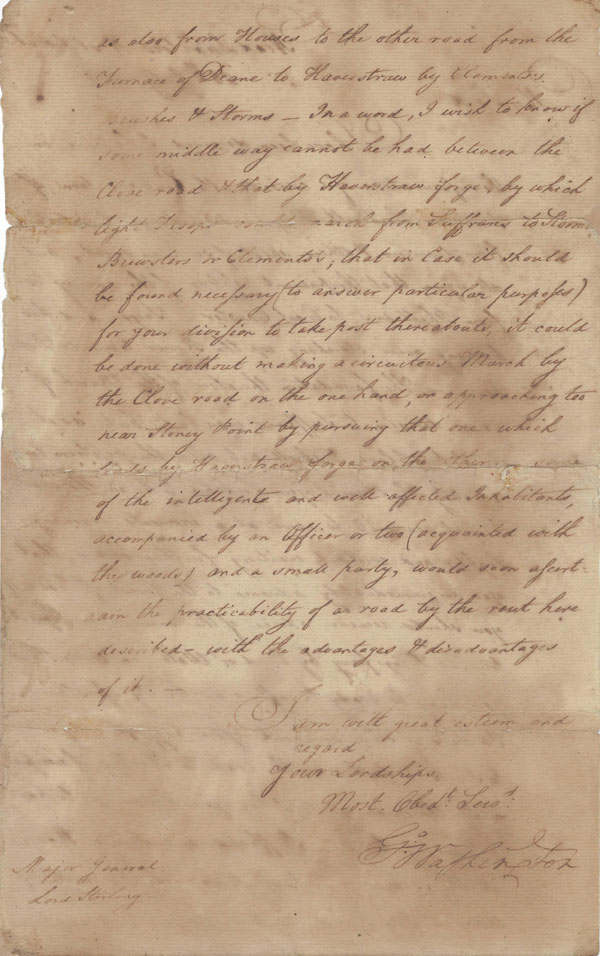 as also from Houses to the other road from the
Furnace of Deane to Haverstraw by Clements
& Storms — In a word, I wish to know if
some middle way cannot be had between the
Clove road & that by Haverstraw forge, by which
light Troops march from Suffrans to Storms
Brewsters or Clements's, that in Case it should
be found necessary (to answer particular purposes)
for your division to take post thereabouts, it could
be done without making a circuitous March by
the Clove road on the one hand, or approaching too
near Stoney Point by pursuing that one which
leads by Haverstraw forge on the other. some
of the intelligent and well affected Inhabitants,
accompanied by an Officer or two (acquainted with
the woods) and a small party, would soon ascert-
ain the practicability of a road by the rout here
described - with the advantages & disadvantages
of it. —
I am with great esteem and
regard
Your Lordships
Most. Obedt. Servt.
Go: Washington
Major General
Lord Sterling